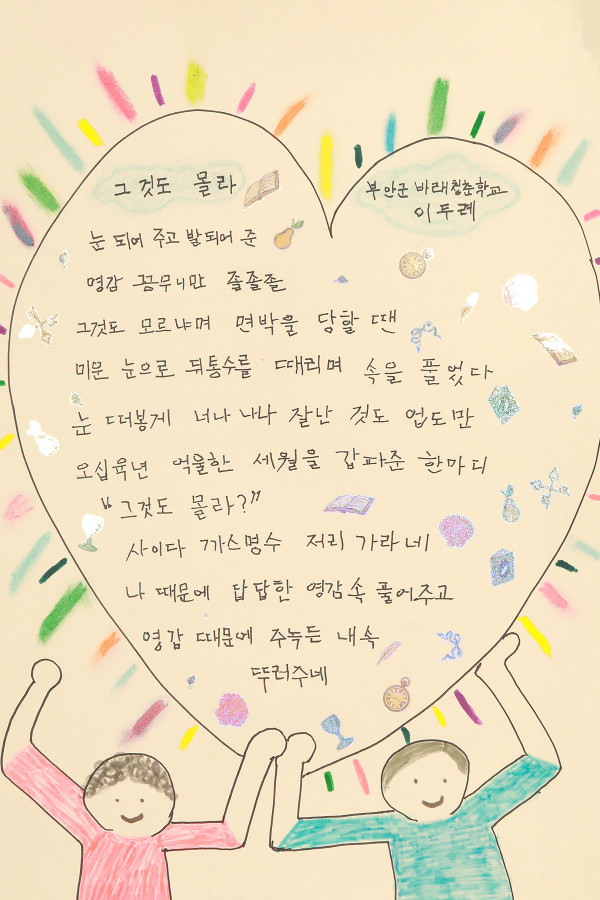 그것도 몰라
부안군 바래청춘학교
이두례
눈 되어 주고 발되어 준
영감 꽁무니만 졸졸졸
그것도 모르냐며 면박을 당할 땐
미운 눈으로 뒤통수를 때리며 속을 풀었다
눈 떠봉게 너나 나나 잘난 것도 업도만
오십육년 억울한 세월을 갑파준 한마디
"그것도 몰라?"
사이다 까스명수 저리 가라네
나 때문에 답답한 영감속 풀어주고
영감 때문에 주눅든 내속
뚜러주네